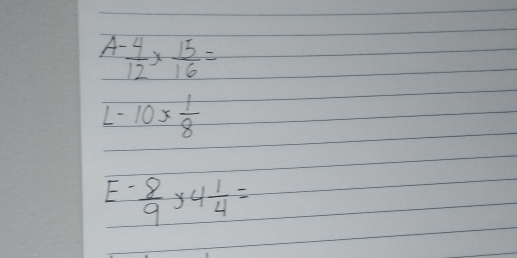 A- 4/12 x 15/16 =
L- 10 x 1/8
E- 8/9 x 4 1/4 =